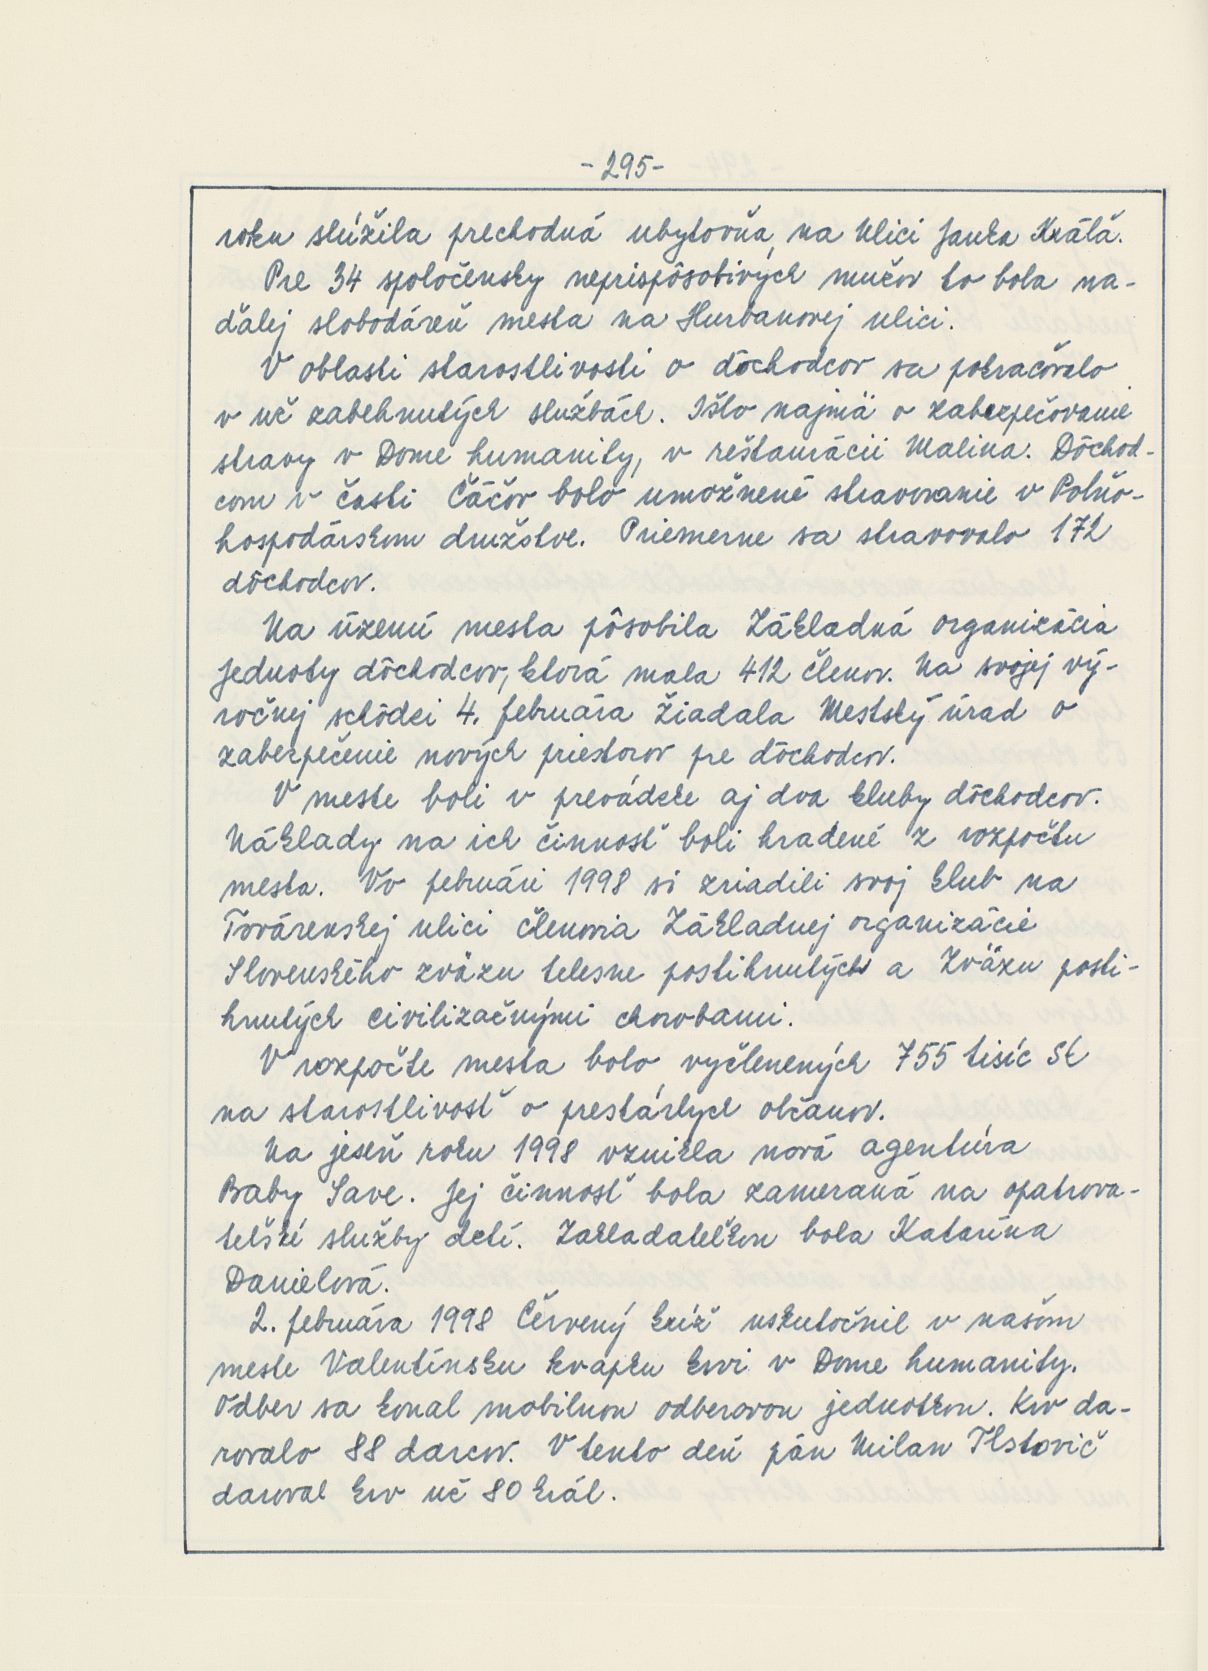 -295-
roku slúžila prechodná ubytovňa na Ulici Janka Kráľa.
Pre 34 spoločensky neprispôsobivých mužov to bola na-
ďalej slobodáreň mesta na Hurbanovej ulici.
V oblasti starostlivosti o dôchodcov sa pokračovalo
v už zabehnutých službách. Išlo najmä o zabezpečovanie
stravy v Dome humanity, v reštaurácii Malina. Dôchod-
com v časti Čáčov bolo umožnené stravovanie v Poľno-
hospodárskom družstve. Priemerne sa stravovalo 172
dôchodcov.
Na území mesta pôsobila Základná organizácia
Jednoty dôchodcov, ktorá mala 412 členov. Na svojej vý-
ročnej schôdzi 4. februára žiadala Mestský úrad o
zabezpečenie nových priestorov pre dôchodcov.
V meste boli v prevádzke aj dva kluby dôchodcov.
Náklady na ich činnosť boli hradené z rozpočtu
mesta. Vo februári 1998 si zriadili svoj klub na
Továrenskej ulici členovia Základnej organizácie
Slovenského zväzu telesne postihnutých a Zväzu posti-
hnutých civilizačnými chorobami.
V rozpočte mesta bolo vyčlenených 755 tisíc Sk
na starostlivosť o prestárlych občanov.
Na jeseň roku 1998 vznikla nová agentúra
Baby Save. Jej činnosť bola zameraná na opatrova-
teľské služby detí. Zakladateľkou bola Katarína
Danielová.
2. februára 1998 Červený kríž uskutočnil v našom
meste Valentínsku kvapku krvi v Dome humanity.
Odber sa konal mobilnou odberovou jednotkou. Krv da-
rovalo 88 darcov. V tento deň pán Milan Tlstovič
daroval krv už 80 krát.